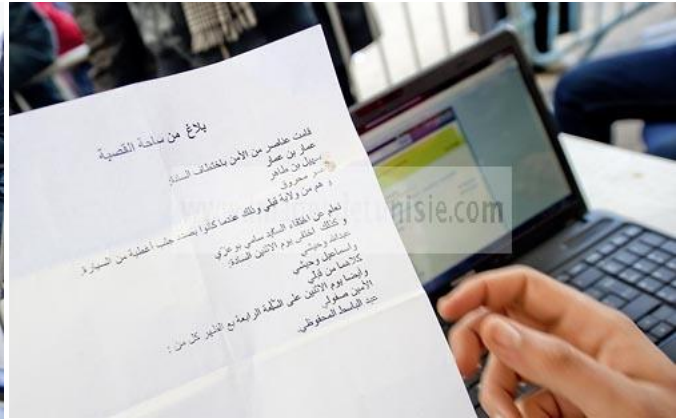 بلاغ من ساحة القصبة
قامت عناصر من الأمن باختطاف السادة:
عمار بن عمار
سهيل بن طاهر
معروف
و هم من ولاية قبلي وذلك عندما كانوا بصدد جلب أغطية من السيارة.
نعلم عن اختفاء السيد سامي بوعزي
و كذلك اختفى يوم الاثنين السادة:
عبدالله وحيشي
واسماعيل وحيشي
كلاهما من قبلي
وأيضا يوم الاثنين على الساعة الرابعة بع الظهر كل من :
الأمين صفولي
عبد الباسط المحفوظي.
nisie.com